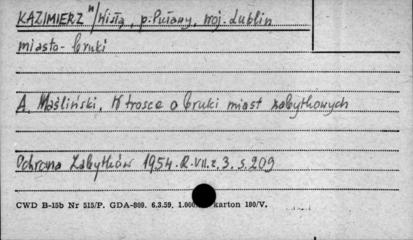 KAZIMIERZ n/Wisłą, p. Puławy, woj. Lublin
miasto - bruki
A. Maśliński, W trosce o bruki miast zabytkowych
Ochrona Zabytków 1954. R. VII. z. 3. s. 209
CWD B-15b Nr 515/P. GDA-809. 6.3.59. 1.000. karton 180/V.